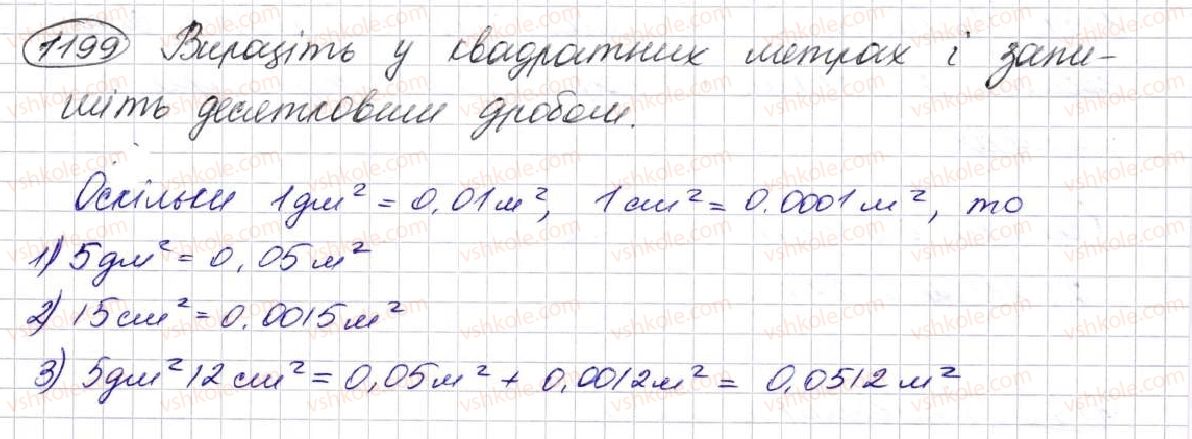 1199 Виразіть у квадратних метрах і запи-
шіть десятковим дробом.
Оскільки 1 дм² = 0,01 м², 1 см² = 0.0001 м², то
1) 5 дм² = 0,05 м²
2) 15 см² = 0.0015 м²
3) 5 дм² 12 см² = 0,05 м² + 0,0012 м² = 0,0512 м²